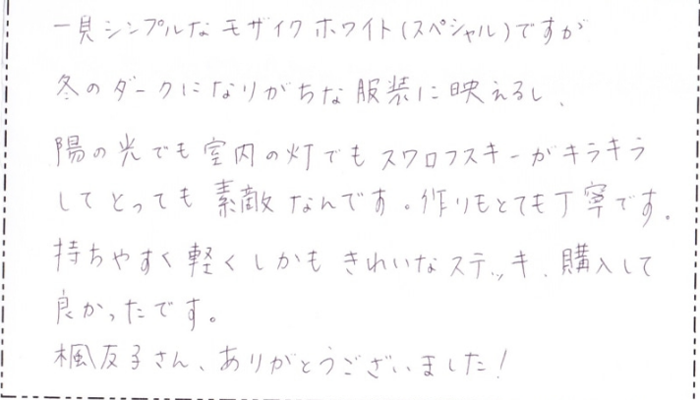 一見シンプルなモザイクホワイト(スペシャル)ですが
冬のダークになりがちな服装に映えるし、
陽の光でも室内の灯でもスワロフスキーがキラキラ
してとっても素敵なんです。作りもとても丁寧です。
持ちやすく軽くしかもきれいなステッキ、購入して
良かったです。
楓友子さん、ありがとうございました!